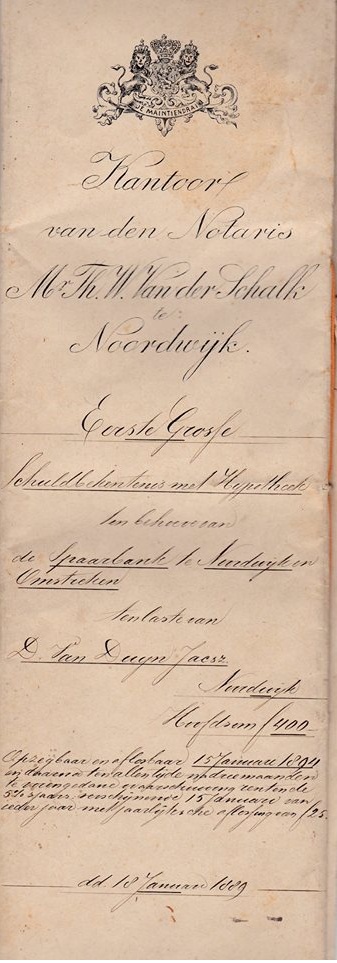 JE MAINTIENDRAI
Kantoor
van den Notaris
Mr. Th. W. Van der Schalk
te
Noordwijk.
Eerste Grosse
Schuldbekentenis met Hypotheek
ten behoeve van
de Spaarbank te Noordwijk en
Omstreken
ten laste van
D. Van Duyn Jacsz.
Noordwijk
Hoofdsom f 400
Opzegbaar en aflosbaar 15 Januari 1894
en daarna ten allen tijde na drie maanden
te voren gedane waarschuwing rentende
5% 'sjaars, verschijnende 15 Januari van
ieder jaar met jaarlijksche aflossing van f 25.
dd. 18 Januari 1889